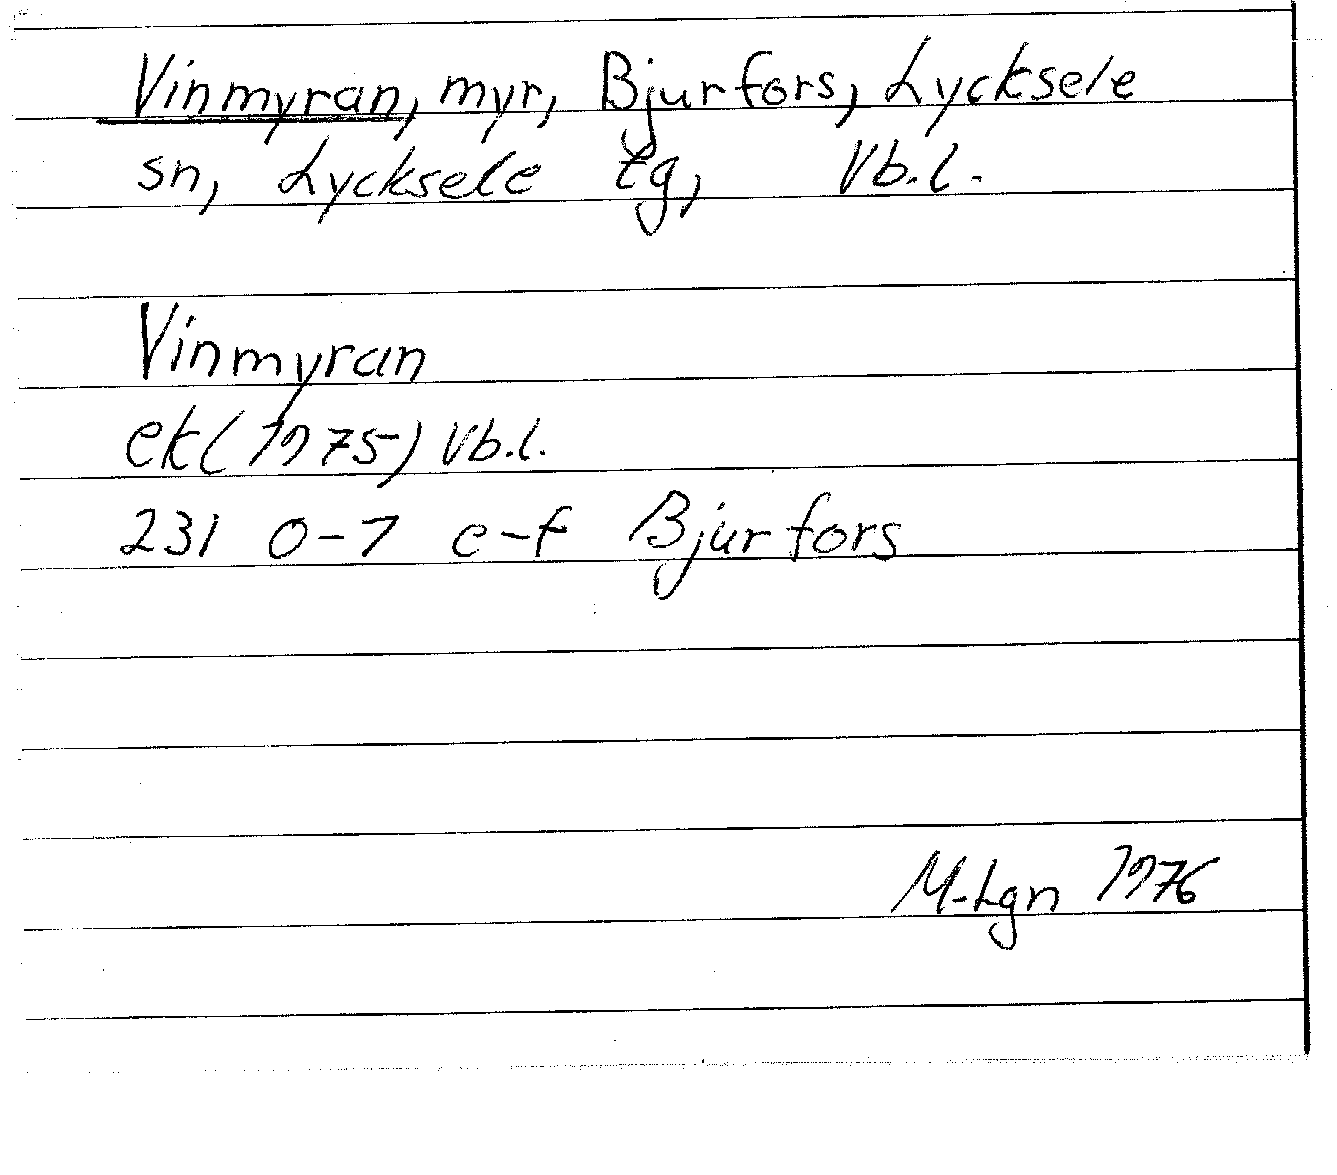 Vinmyran, myr, Bjurfors, Lycksele
sn, Lycksele tg, Vb.l.
Vinmyran
ek(1975) Vb.l.
231 0-1 e-f Bjurfors
M-Lgn 1976